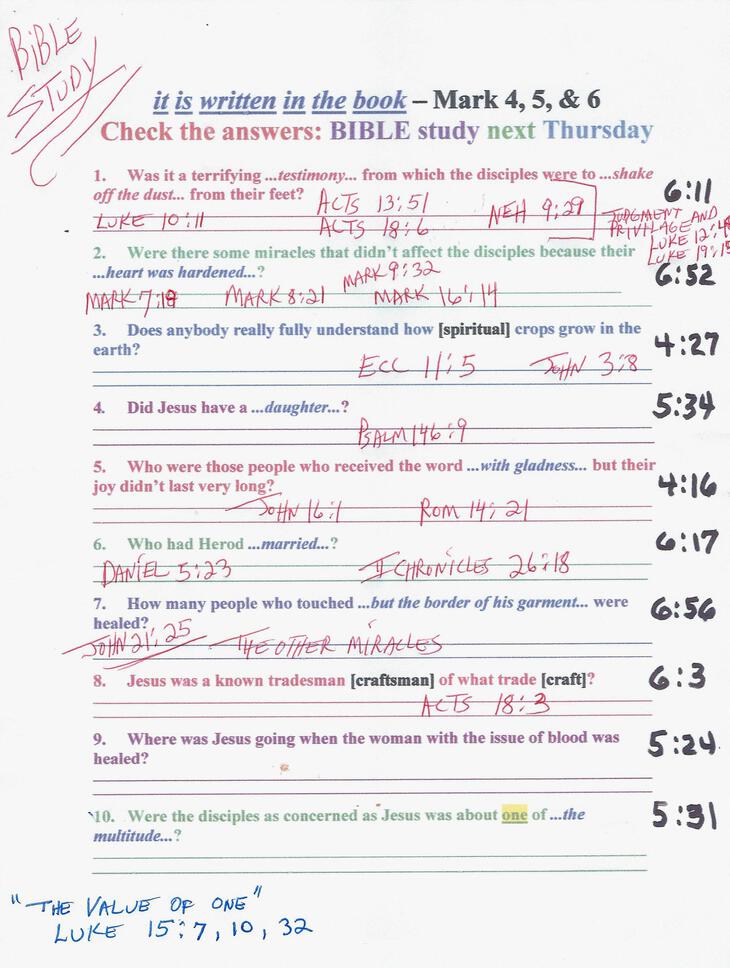 BiBLE
STUDY
it is written in the book – Mark 4, 5, & 6
Check the answers: BIBLE study next Thursday
1. Was it a terrifying ...testimony... from which the disciples were to ...shake
off the dust... from their feet?
6:11
ACTS 13:51
LUKE 10:11
ACTS 18:6
NEH 9:29
JUDGMENT AND
PRIVILAGE
LUKE 12:4
LUKE 19:15
2. Were there some miracles that didn’t affect the disciples because their
...heart was hardened...?
6:52
MARK 9:32
MARK 7:18
MARK 8:21
MARK 16:14
3. Does anybody really fully understand how [spiritual] crops grow in the
earth?
4:27
ECC 11:5
JOHN 3:8
4. Did Jesus have a ...daughter...?
5:34
PSALM 146:9
5. Who were those people who received the word ...with gladness... but their
joy didn’t last very long?
4:16
JOHN 16:1
ROM 14:21
6. Who had Herod ...married...?
6:17
DANIEL 5:23
II CHRONICLES 26:18
7. How many people who touched ...but the border of his garment... were
healed?
6:56
JOHN 21:25
THE OTHER MiRACLES
8. Jesus was a known tradesman [craftsman] of what trade [craft]?
6:3
ACTS 18:3
9. Where was Jesus going when the woman with the issue of blood was
healed?
5:24
10. Were the disciples as concerned as Jesus was about one of ...the
multitude...?
5:31
"THE VALUE OF ONE"
LUKE 15:7, 10, 32